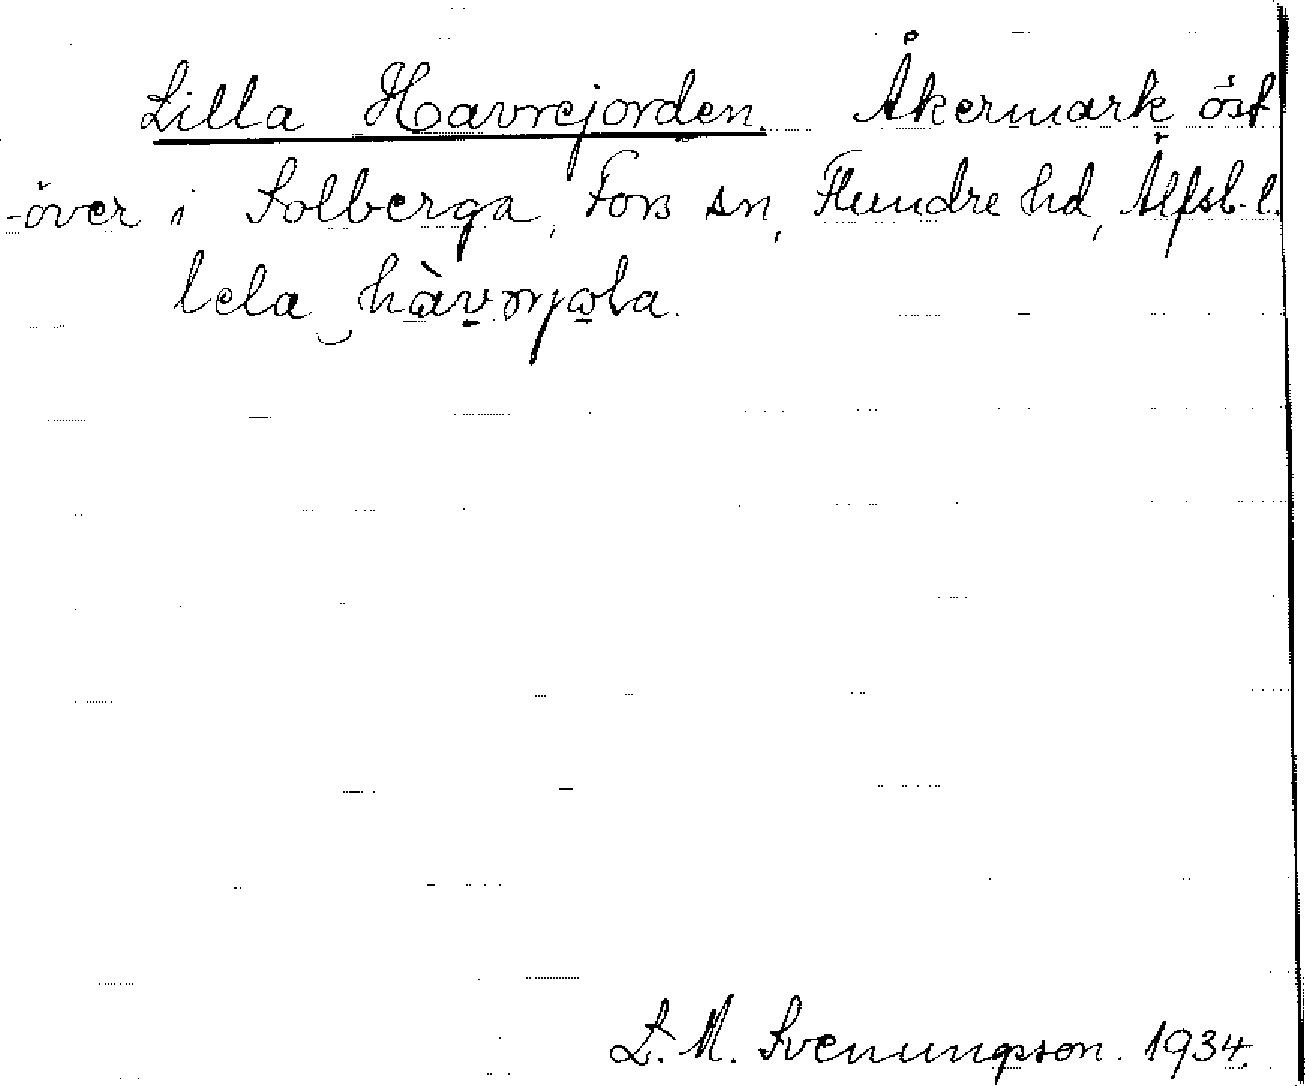 Lilla Havrejorden. Åkermark öst
-över i Solberga, Fors sn, Flundre hd, Älfsb. l.
lela hàvrjola.
L. M. Svenungsson. 1934.